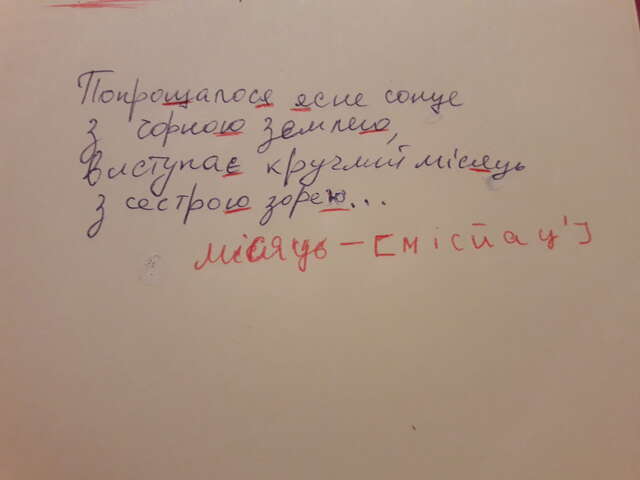 Попрощалося ясне сонце
З чорною землею,
Виступає круглий місяць
З сестрою зорею...
місяць – [місйац']